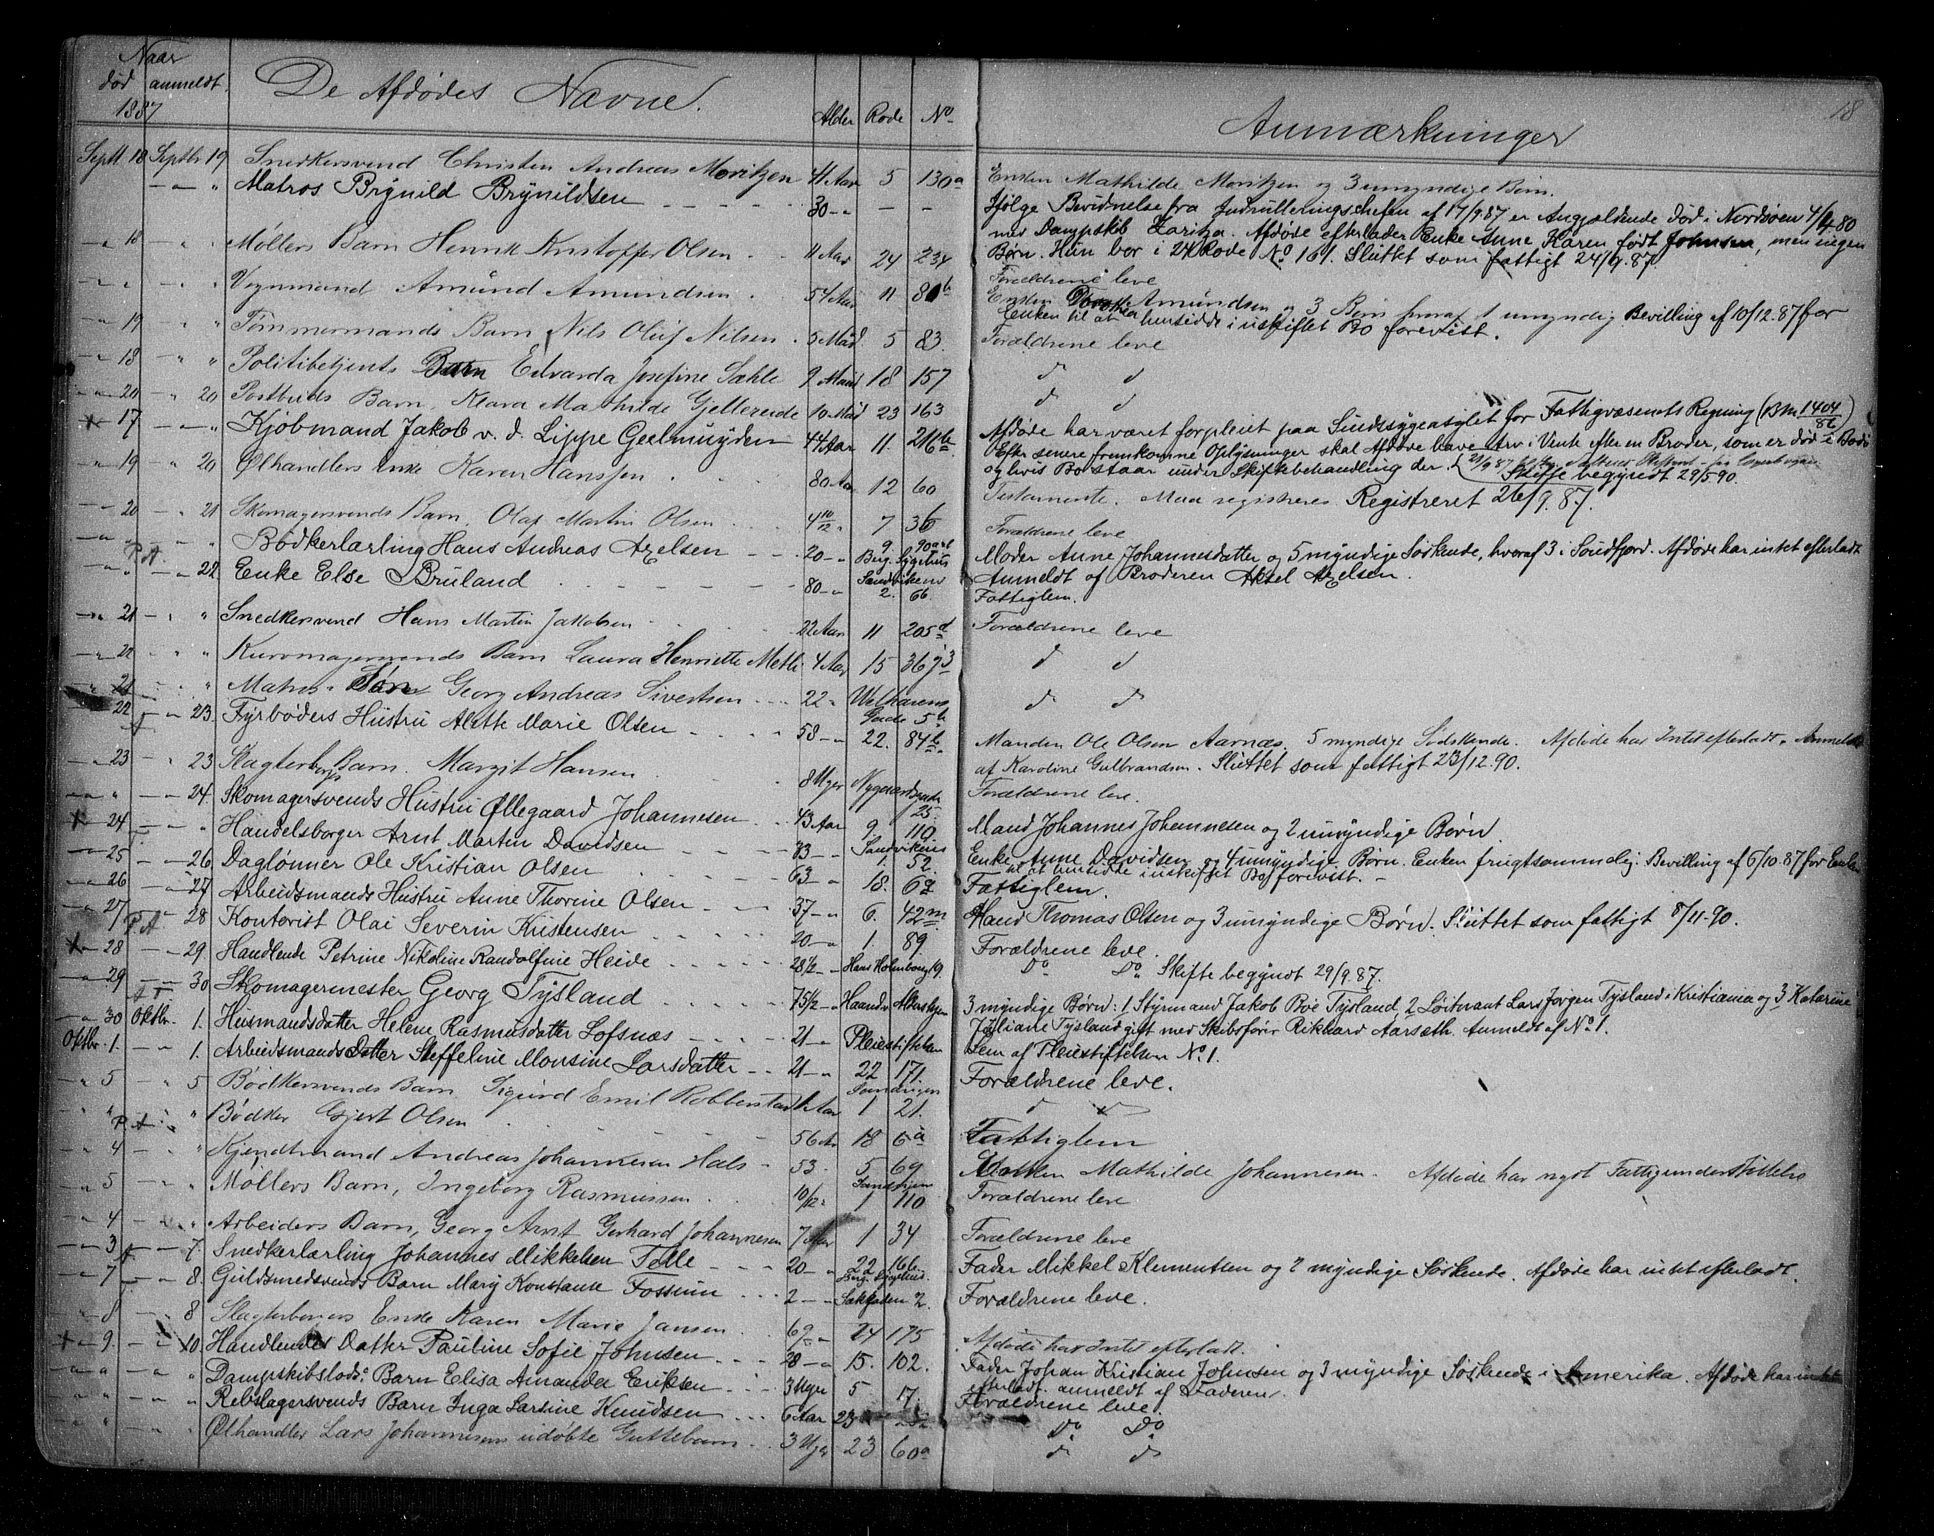 Naar
død anmeldt.
1887
De Afdødes Navne.
Alder Rode No
Anmærkninger
18
Septbr 18 Septbr 19 Snedkersvend Christen Andreas Moritzen 41 Aar 5 130a Enken Mathilde Moritzen og 3 umyndige Børn.
— „ Matros Brynild Brynildsen 30 — — — Ifølge Bevidnelse fra Indrulleringschefen af 17/9.87 er Angjældende død i Nordsøen 4/4 80
med Dampskib Afdøde efterlader Enke Anne Karen født Johnsen, men ingen
Børn. Hun bor i 24 Rode No 161. Sluttet som fattigt 24/9.87.
18 „ Møllers Barn Henrik Kristoffer Olsen 11 Aar 24 234 Forældrene leve
„ „ Vognmand Amund Amundsen 54 Aar 11 86b Enken Amundsen og 3 Børn hvoraf 1 umyndig. Bevilling af 10/12.87 for
Enken til at hensidde i uskiftet Bo forevist.
19 „ Tømmermands Barn Nils Oluf Nilsen 5 Md 5 83. Forældrene leve
18 „ Politibetjents Barn Edvarda Josefine Sæhle 9 Maan 18 157 d d
20 20 Postbuds Barn, Klara Mathilde Gjellerude 10 Md 23 163 d d
+ 17 „ Kjøbmand Jakob v. d. Lippe Geelmuyden 44 Aar 11. 216b Afdøde har været forpleiet paa Sindssygeasylet for Fattigvæsenets Regning (BM 1404/86)
Efter senere fremkomne Oplysninger skal Afdøde have Arv i Vente efter en Broder, som er død i Bodø
og hvis Bo staar under Skiftebehandling der. Skifte begyndt 28/5 90.
19 20 Ølhandlers Enke Karen Hanssen 80 Aar 12 60 Testamente. Maa registreres Registreret 26/9.87.
20 21 Skomagersvends Barn, Olaf Martin Olsen 4 10/12 7 36 Forældrene leve
„ „ Bødkerlærling Hans Andreas Axelsen 20 9 90 Berg. Sygehus Moder Anne Johannesdatter og 5 myndige Søskende, hvoraf 3 i Søndfjord. Afdøde har intet efterladt
Anmeldt af Broderen Aksel Axelsen.
P.A. 22 Enke Else Bruland 80 Sandvikens 2. 66. Fattiglem.
21 „ Snedkersvend Hans Martin Jakobsen 22 Aar 11 205d Forældrene leve
22 „ Kurvmagersvends Barn Laura Henriette Methe 4 Aar 15 36 d d
21 „ Matros Søn Georg Andreas Sivertsen 22 Welhavens Gade 5b d d
22 23. Fyrbøders Hustru Alette Marie Olsen 58 22. 84b Manden Ole Olsen Aarnæs. 5 myndige Sødskende. Afdøde har Intet efterladt. Anmeldt
af Karoline Gulbrandsen. Sluttet som fattigt 23/12.90.
23 23 Slagterborgs Barn. Margit Hansen 8 Uger Nygaardsgade 25. Forældrene leve.
„ 24. Skomagersvends Hustru Øllegaard Johannesen 43 Aar 9. 110. Mand Johannes Johannesen og 2 umyndige Børn.
+ 24 „ Handelsborger Arnt Martin Davidsen 33 Sandvikens 1. 52. Enke Anne Davidsen og 4 umyndige Børn. Enken frugtsommelig. Bevilling af 6/10.87 for Enken
til at hensidde i uskiftet Bo forevist.
25 26 Dagslønner Ole Kristian Olsen 63 18. 62. Fattiglem.
26 27 Arbeidsmands Hustru Anne Thorine Olsen 37 6. 42m Mand Thomas Olsen og 3 umyndige Børn. Sluttet som fattigt 8/11.90.
27 P.A. 28 Kontorist Olai Severin Kristensen 20 1. 89. Forældrene leve.
+ 28 29. Handlende Petrine Nikoline Randolfine Heide 28 1/2 Hans Holmborg 19. Do Do Skifte begyndt 29/9.87.
29 30 Skomagermester Georg Tysland 75 1/2 Haandv. Alderstyen 3 myndige Børn: 1 Styrmand Jakob Boe Tysland, 2 Løitnant Lars Jørgen Tysland i Kristiania og 3 Katarine
Juliane Tysland gift med Skibsfører Rikhard Aarsæth. Anmeldt af No 1.
30 Oktbr. 1. Husmandsdatter Helene Rasmusdatter Lofsnæs 21 Pleiestiftelsen Lem af Pleiestiftelsen No 1.
Oktbr. 1. 1. Arbeidsmands Datter Steffeline Monsine Larsdatter 21 22 171. Forældrene leve.
5 5 Bødkersvends Barn Sigurd Emil Robberstad Aar Sandvigen 1 21. d d
„ P.A. „ Bødker Gjert Olsen 56 Aar 18 6a Fattiglem
4 „ Andreas Johannesen Hals 53. 5 69 Enken Mathilde Johannesen. Afdøde har nydt Fattigunderstøttelse
5 „ Møllers Barn, Ingeborg Rasmussen 10/12 Sandvigen 1 110 Forældrene leve
4 „ Arbeiders Barn, Georg Arnt Gerhard Johannesen 7 Aar 1 34 Forældrene leve
3 7. Snedkerlærling Johannes Mikkelsen Telle 20 22 66. Berg. Sygehus. Fader Mikkel Klementsen og 2 myndige Søskende. Afdøde har intet efterladt.
7 8. Guldsmedsvends Barn Mary Konstanse Fossum 2 2. Forældrene leve.
8 8 Slagterborgers Enke Karen Marie Jansen 69 24 175 Afdøde har Intet efterladt.
+ 9. 10. Handlendes Datter Pauline Sofie Johnsen 28 15. 102. Fader Johan Kristian Johnsen og 3 myndige Søskende i Amerika. Afdøde har intet
efterladt. anmeldt af Faderen.
„ „ Dampskibslods: Barn Elisa Amanda Eriksen 3 Uger 5 17. Forældrene leve.
„ „ Rebslagersvends Barn Inga Larsine Knudsen 6 Aar 23 Do Do
„ „ Ølhandler Lars Johannesens udøbte Guttebarn 3 Uger 23 60a d d